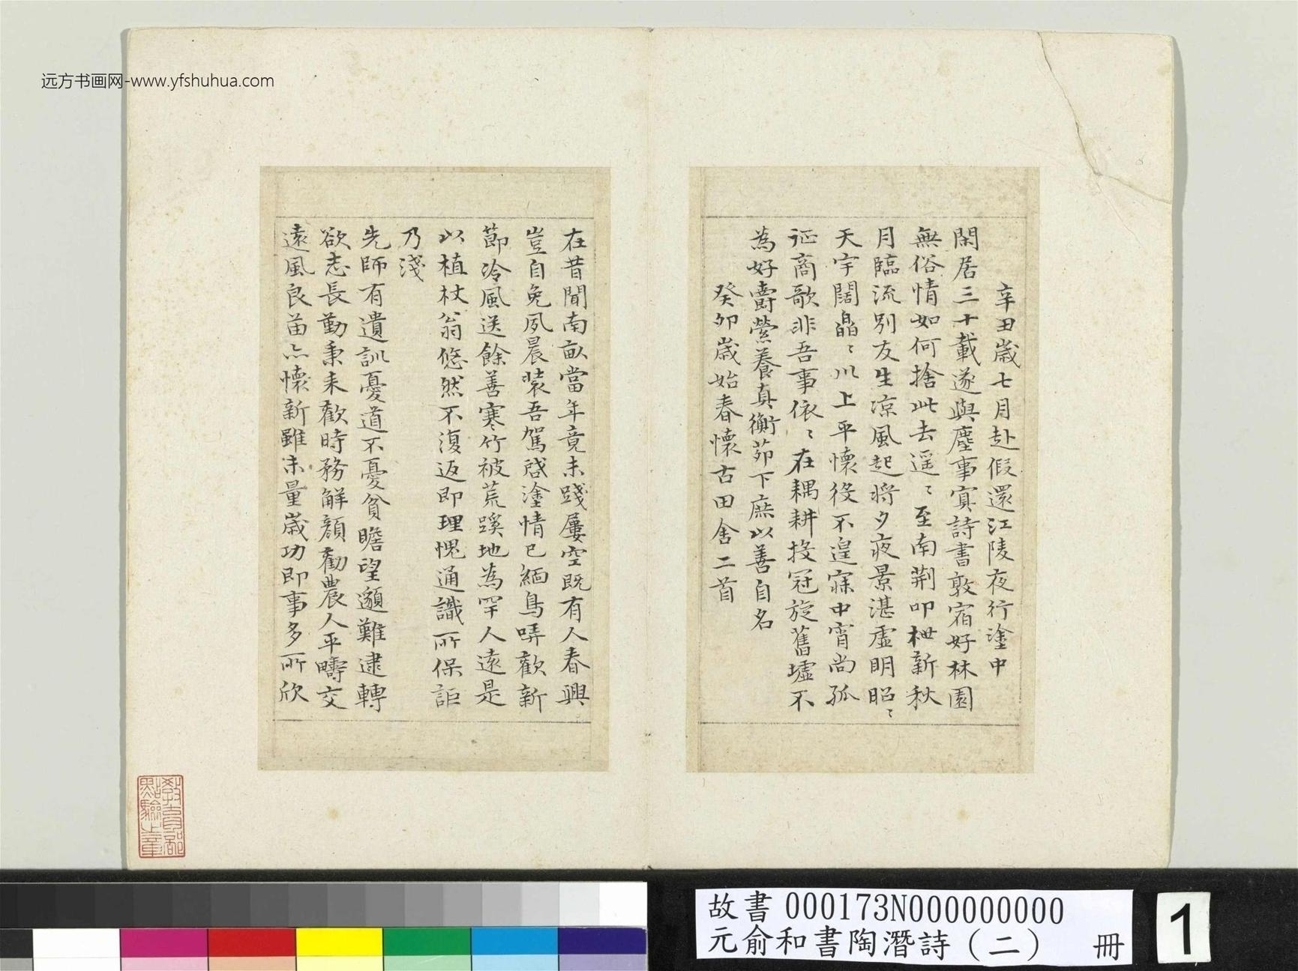 远方书画网-www.yfshuhua.com
辛丑歲七月赴假還江陵夜行塗中
閑居三十載遂與塵事寘詩書敦宿好林園
無俗情如何捨此去遥〻至南荆叩枻新秋
月臨流别友生凉風起將夕夜景湛虚明昭〻
天宇闊皛〻川上平懷役不遑寐中宵尚孤
征商歌非吾事依〻在耦耕投冠旋舊墟不
為好爵縈養真衡茆下庶以善自名
癸卯歲始春懷古田舍二首
在昔聞南畝當年竟未踐屢空既有人春興
豈自免夙晨装吾駕啓塗情已緬鳥哢歡新
節冷風送餘善寒竹被荒蹊地為罕人遠是
以植杖翁悠然不復返即理愧通識所保詎
乃淺
先師有遺訓憂道不憂貧瞻望邈難逮轉
欲志長勤秉耒歡時務解顔勸農人平疇交
遠風良苗亦懷新雖未量歲功即事多所欣
教育部
點驗之章
故書 000173N000000000
元俞和書陶潛詩（二） 冊
1